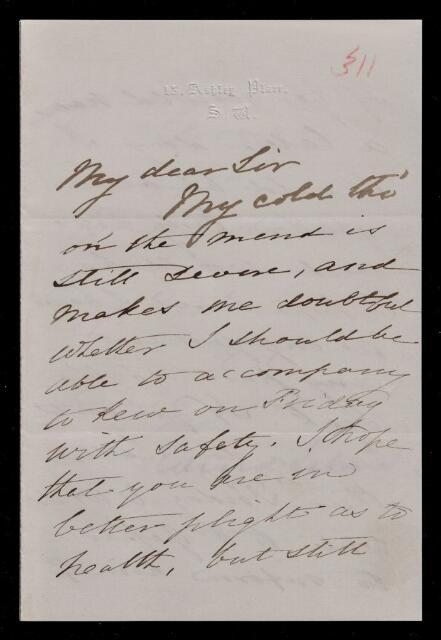 311
15. Ashley Place.
S. W.
My dear Sir
My cold tho'
on the mend is
still severe, and
makes me doubtful
whether I should be
able to accompany
to Kew on Friday
with safety. I hope
that you are in
better plight as to
health, but still